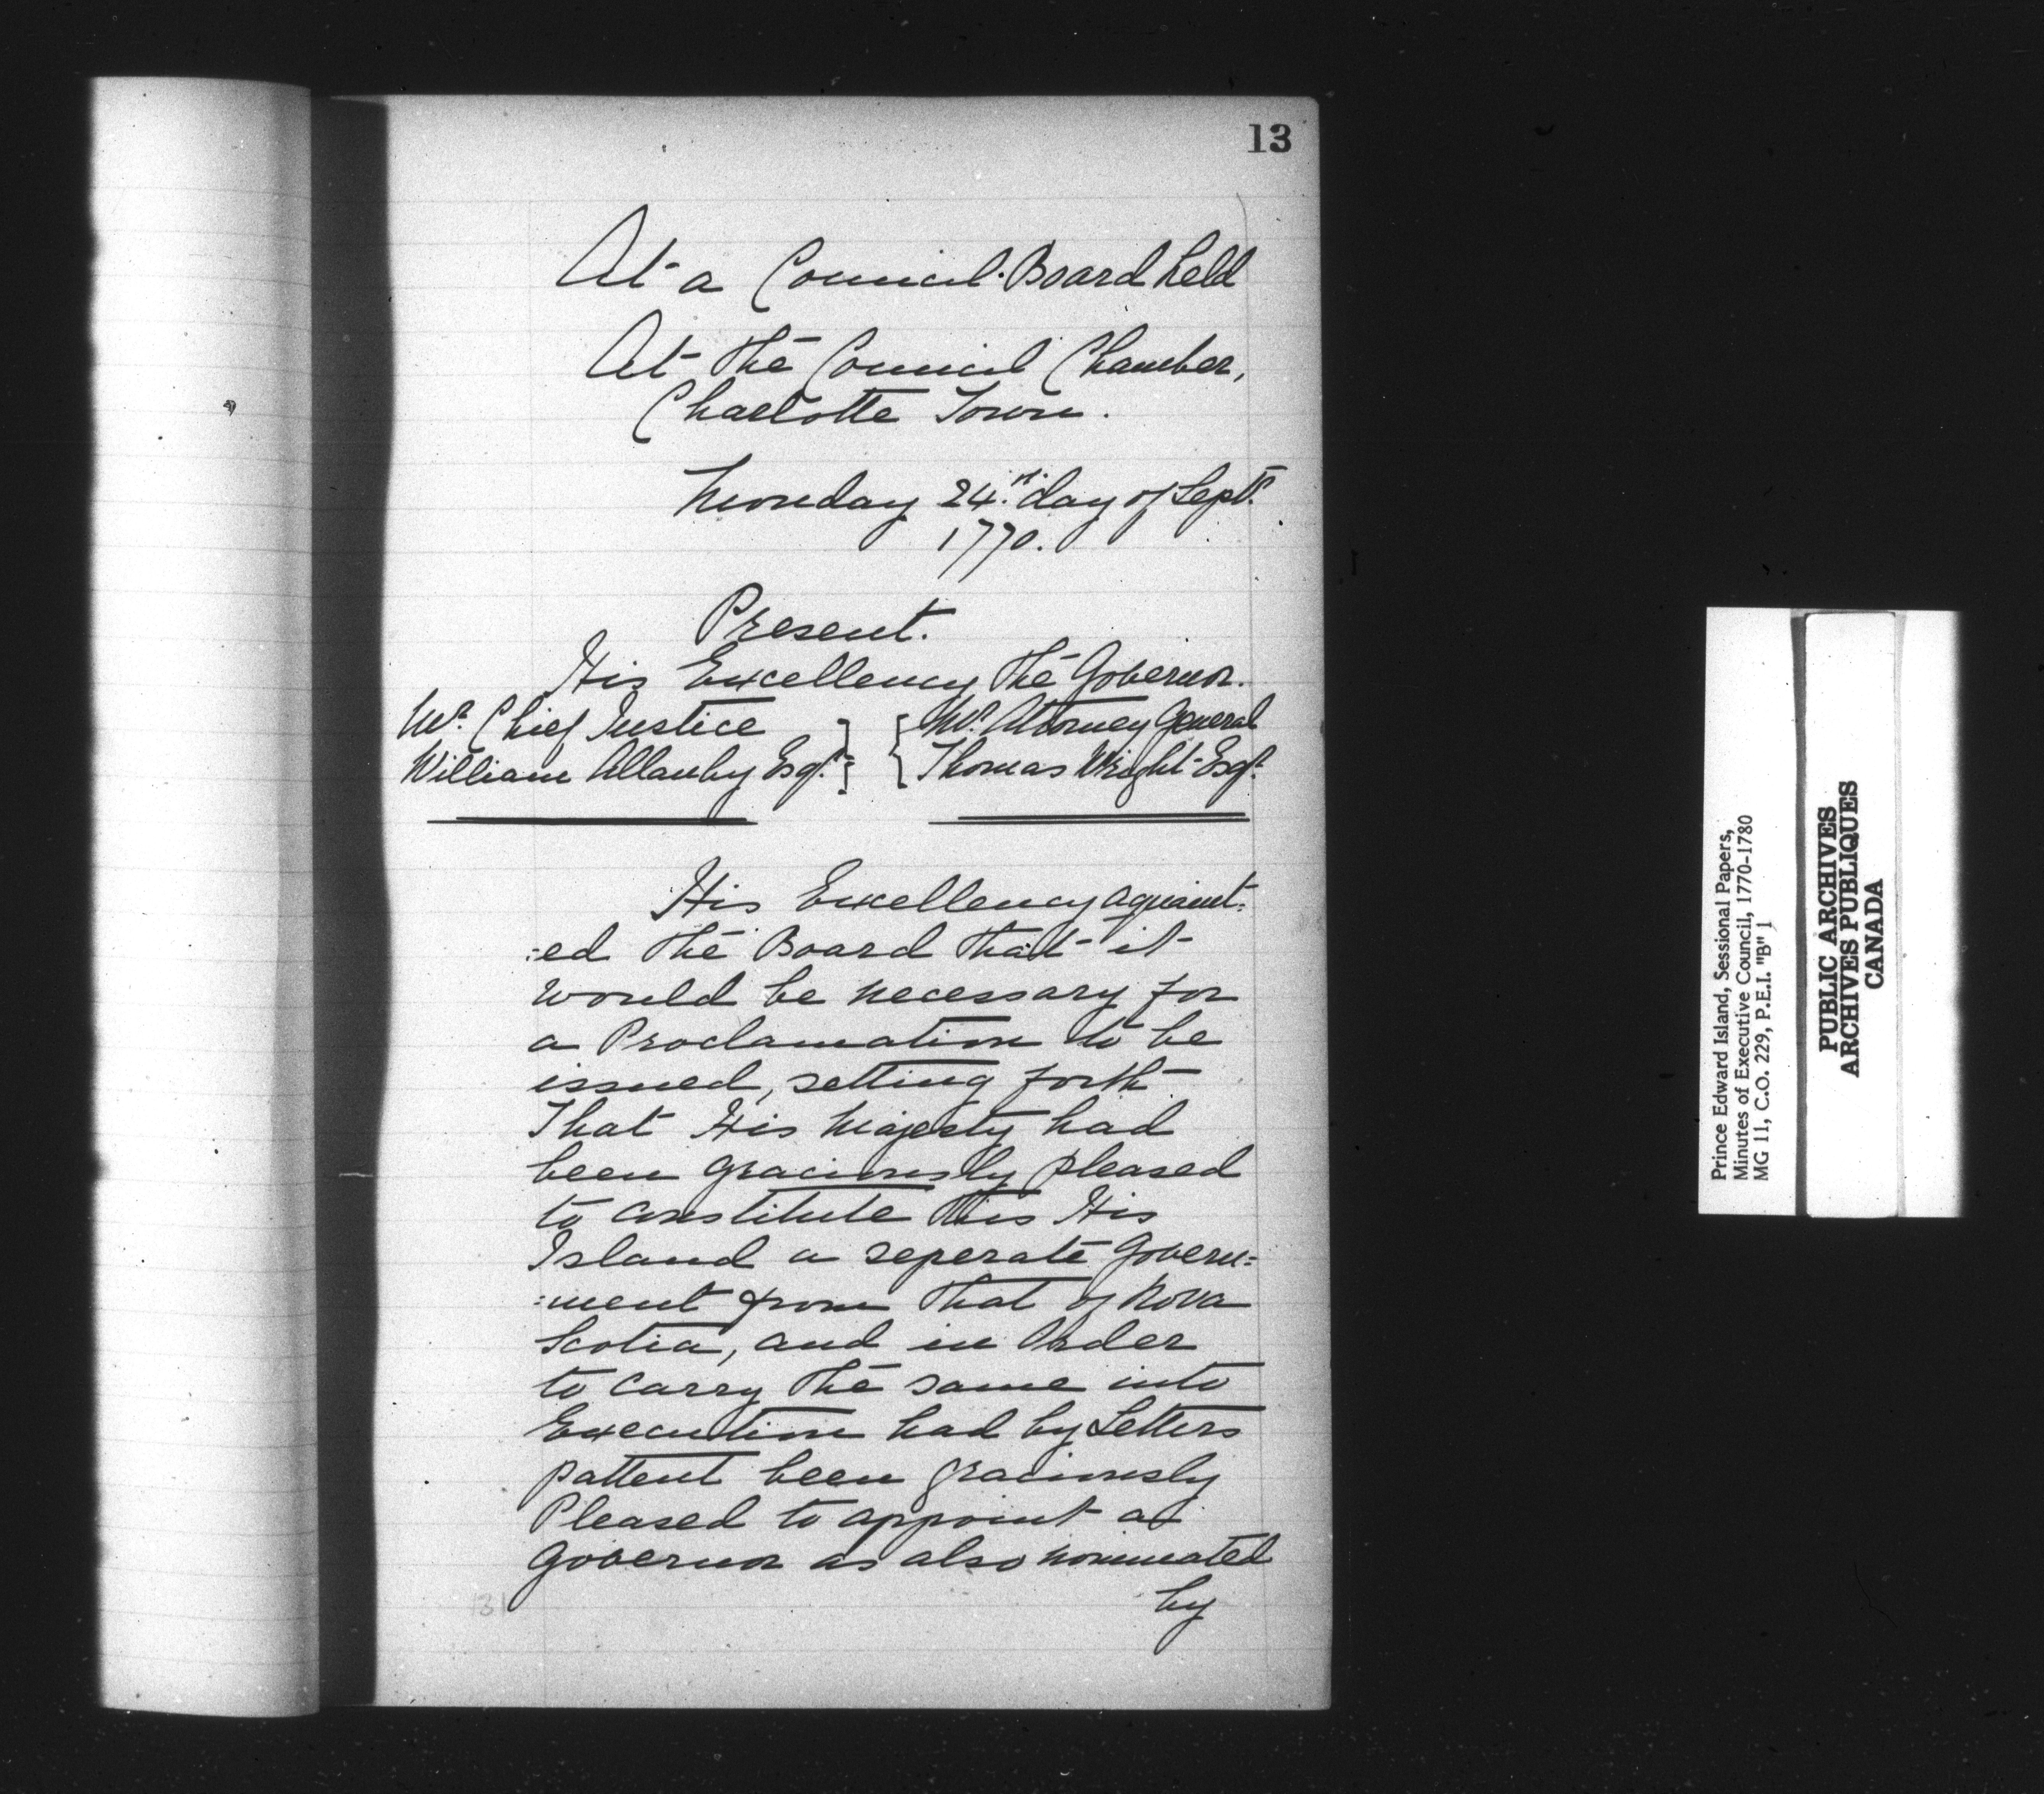 13
At a Council Board held
At the Council Chamber,
Charlotte Town.
Monday 24.th day of Septr.
1770.
Present.
His Excellency the Governor.
Mr. Chief Justice } { Mr. Attorney General
William Allanby Esqr. } { Thomas Wright Esqr.
His Excellency aquaint:
:ed the Board that it
would be necessary for
a Proclamation to be
issued, setting forth
That His Majesty had
been graciously pleased
to constitute this His
Island a seperate Govern:
:ment from that of Nova
Scotia, and in Order
to carry the same into
Execution had by Letters
pattent been graciously
Pleased to appoint a
Governor as also nominated
by
131
Prince Edward Island, Sessional Papers,
Minutes of Executive Council, 1770-1780
MG 11, C.O. 229, P.E.I. "B" 1
PUBLIC ARCHIVES
ARCHIVES PUBLIQUES
CANADA